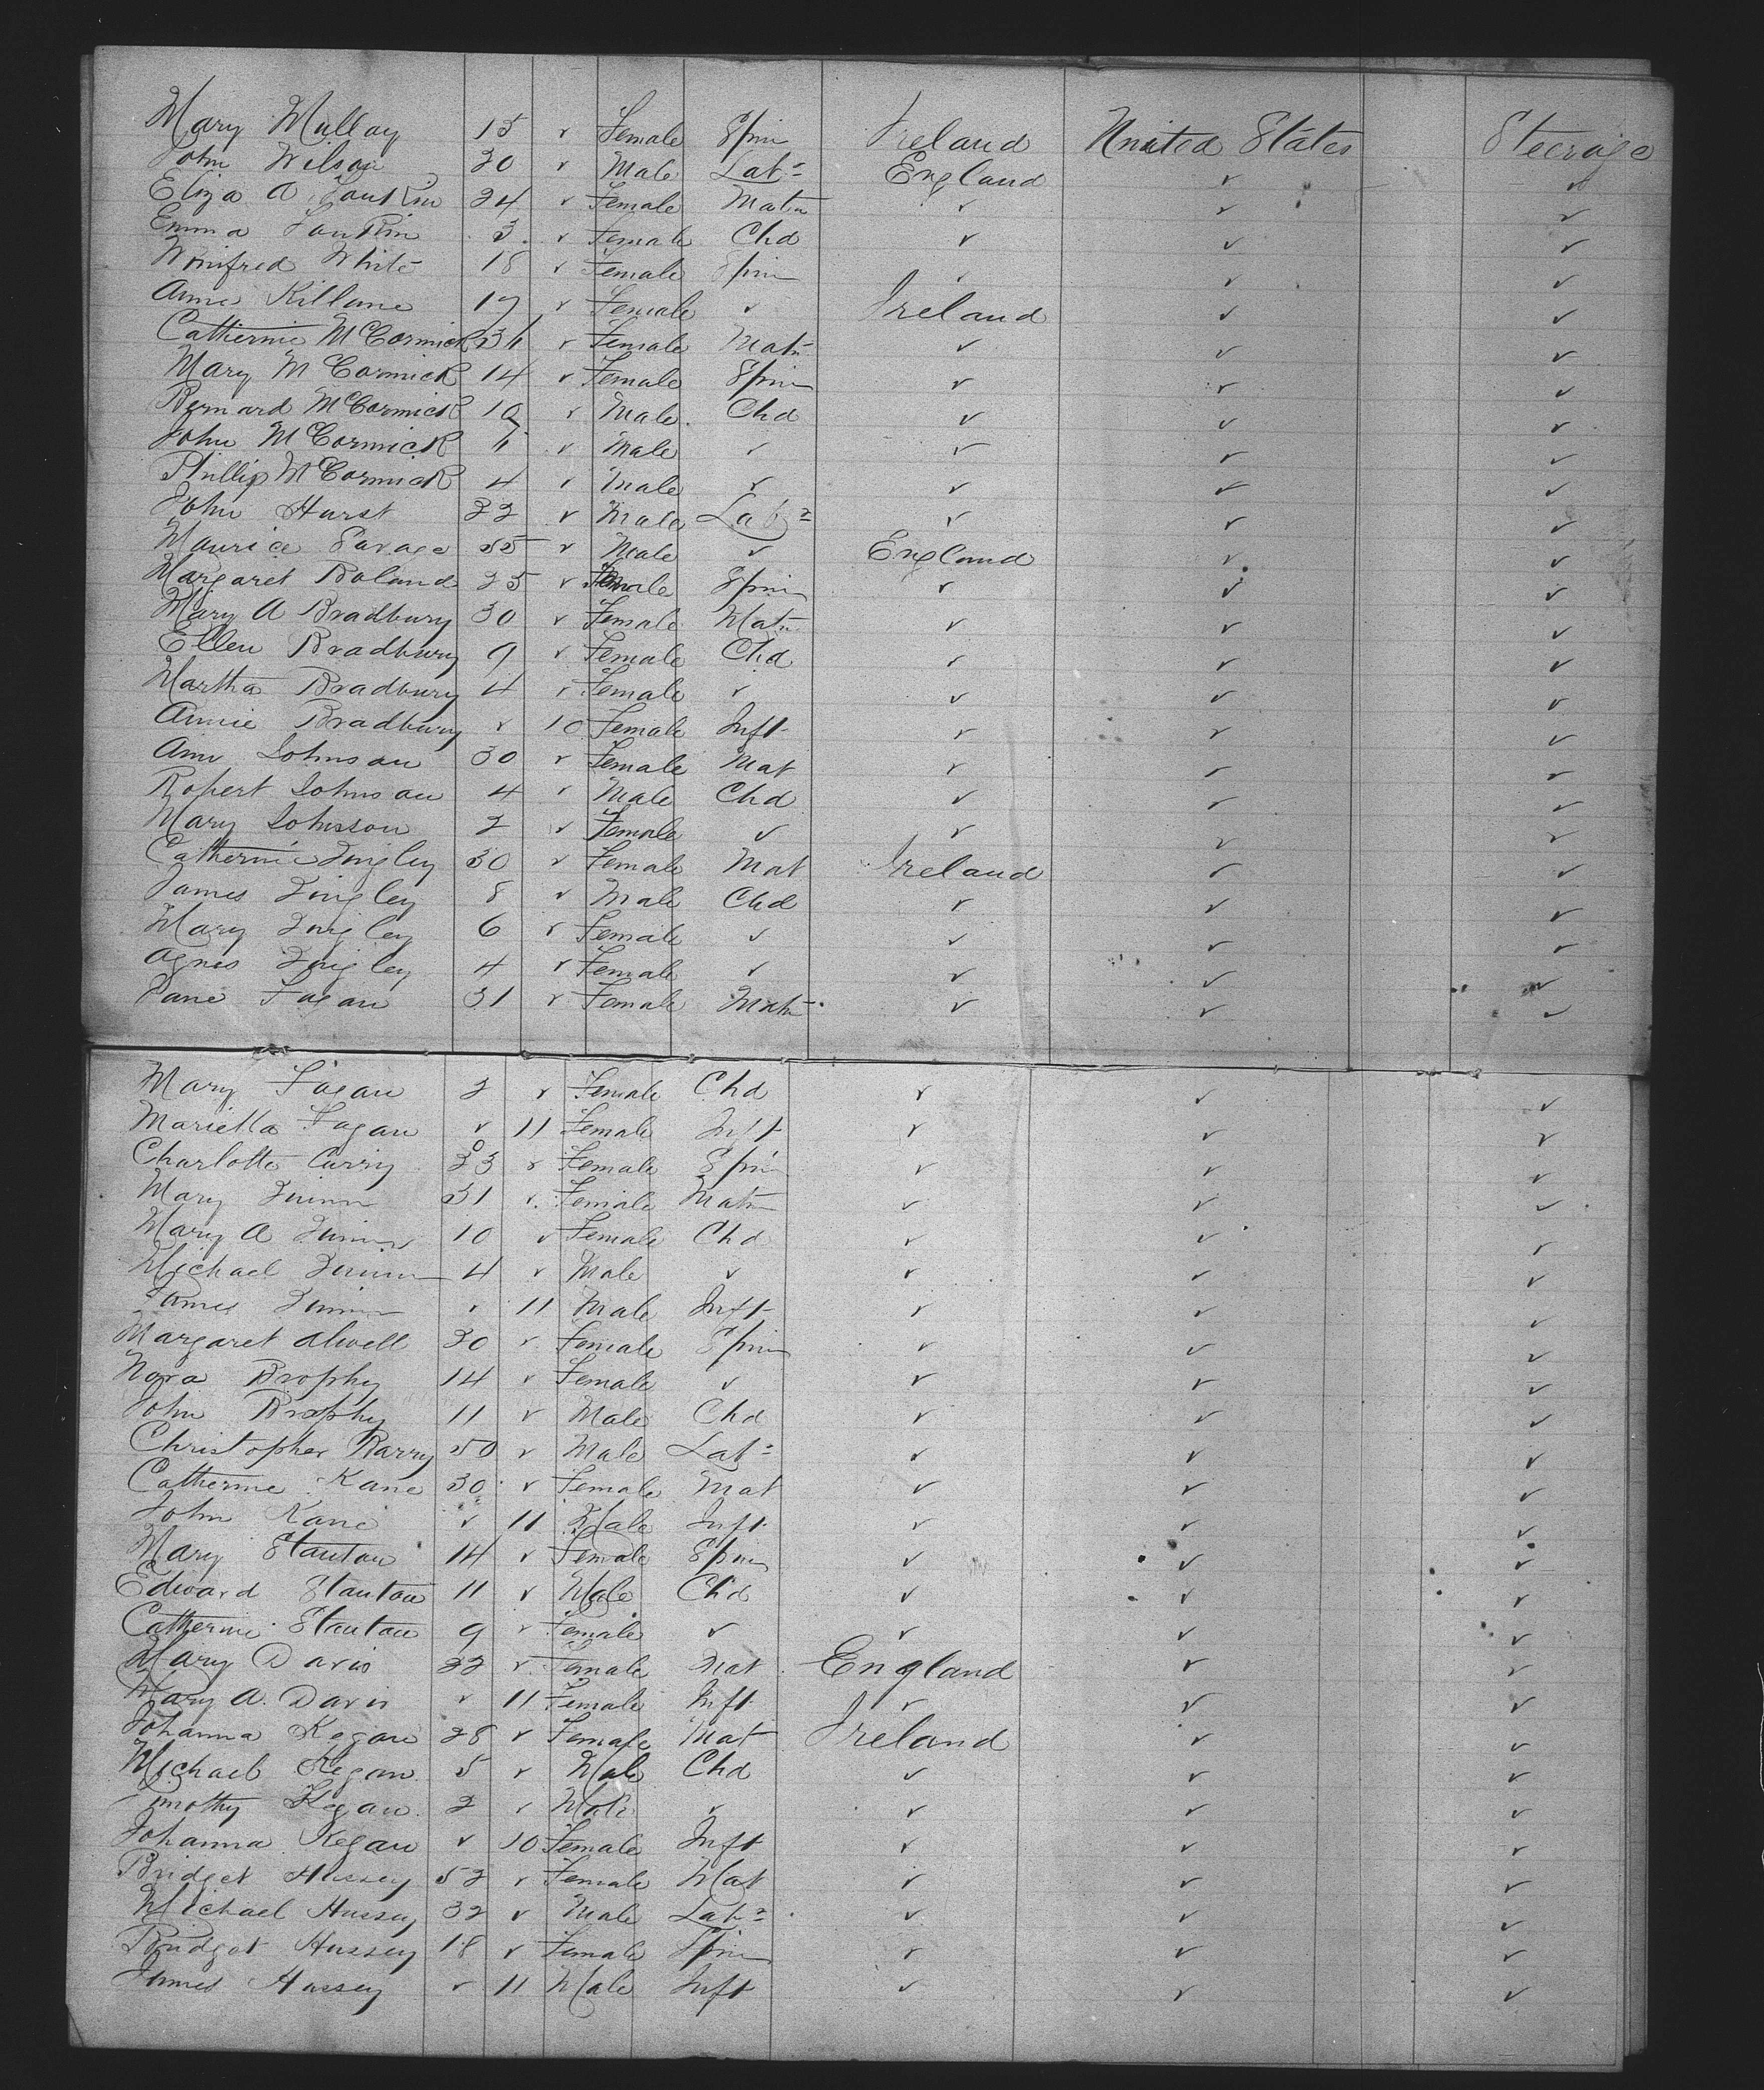 Mary Mullay 15 ✓ Female Spin Ireland United States Steerage
John Wilson 30 ✓ Male Labr England ✓ ✓
Eliza A 24 ✓ Female Matn ✓ ✓ ✓
Emma 3 ✓ Female Chd ✓ ✓ ✓
Winifred White 18 ✓ Female Spin ✓ ✓ ✓
Anne Killane 19 ✓ Female ✓ Ireland ✓ ✓
Catherine McCormick 36 ✓ Female Matn ✓ ✓ ✓
Mary McCormick 14 ✓ Female Spin ✓ ✓ ✓
Bernard McCormick 10 ✓ Male Chd ✓ ✓ ✓
John McCormick 6 ✓ Male ✓ ✓ ✓ ✓
Phillip McCormick 4 ✓ Male ✓ ✓ ✓ ✓
John Hurst 32 ✓ Male Labr ✓ ✓ ✓
Maurice Savage 55 ✓ Male ✓ England ✓ ✓
Margaret Boland 25 ✓ Female Spin ✓ ✓ ✓
Mary A Bradbury 30 ✓ Female Matn ✓ ✓ ✓
Ellen Bradbury 9 ✓ Female Chd ✓ ✓ ✓
Martha Bradbury 4 ✓ Female ✓ ✓ ✓ ✓
Annie Bradbury ✓ 10 Female Inft ✓ ✓ ✓
Ann Johnson 30 ✓ Female Mat ✓ ✓ ✓
Robert Johnson 4 ✓ Male Chd ✓ ✓ ✓
Mary Johnson 2 ✓ Female ✓ ✓ ✓ ✓
Catherine Quigley 30 ✓ Female Mat Ireland ✓ ✓
James Quigley 8 ✓ Male Chd ✓ ✓ ✓
Mary Quigley 6 ✓ Female ✓ ✓ ✓ ✓
Agnes Quigley 4 ✓ Female ✓ ✓ ✓ ✓
Jane Fagan 31 ✓ Female Matn ✓ ✓ ✓
Mary Fagan 2 ✓ Female Chd ✓ ✓ ✓
Mariella Fagan ✓ 11 Female Inft ✓ ✓ ✓
Charlotte Curry ✓ Female Spin ✓ ✓ ✓
Mary Quinn 31 ✓ Female Matn ✓ ✓ ✓
Mary A Quinn 10 ✓ Female Chd ✓ ✓ ✓
Michael Quinn 4 ✓ Male ✓ ✓ ✓ ✓
James Quinn ✓ 11 Male Inft ✓ ✓ ✓
Margaret Alwell 30 ✓ Female Spin ✓ ✓ ✓
Nora Brophy 14 ✓ Female ✓ ✓ ✓ ✓
John Brophy 11 ✓ Male Chd ✓ ✓ ✓
Christopher Barry 50 ✓ Male Labr ✓ ✓ ✓
Catherine Kane 30 ✓ Female Mat ✓ ✓ ✓
John Kane ✓ 11 Male Inft ✓ ✓ ✓
Mary Stanton 14 ✓ Female Spin ✓ ✓ ✓
Edward Stanton 11 ✓ Male Chd ✓ ✓ ✓
Catherine Stanton 9 ✓ Female ✓ ✓ ✓ ✓
Mary Davis 32 ✓ Female Mat England ✓ ✓
Mary A. Davis ✓ 11 Female Inft ✓ ✓ ✓
Johanna Kegan 28 ✓ Female Mat Ireland ✓ ✓
Michael Kegan 5 ✓ Male Chd ✓ ✓ ✓
Timothy Kegan 2 ✓ Male ✓ ✓ ✓ ✓
Johanna Kegan ✓ 10 Female Inft ✓ ✓ ✓
Bridget Hussey 52 ✓ Female Mat ✓ ✓ ✓
Michael Hussey 32 ✓ Male Labr ✓ ✓ ✓
Bridget Hussey 18 ✓ Female Spin ✓ ✓ ✓
James Hussey ✓ 11 Male Inft ✓ ✓ ✓